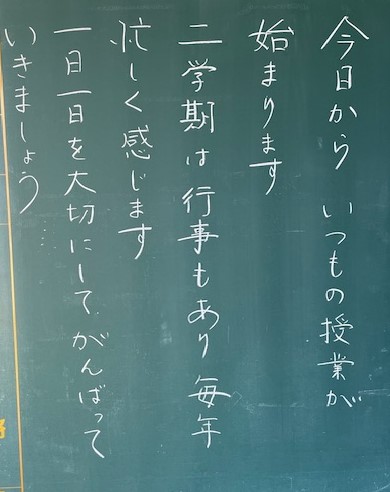 今日から いつもの授業が
始まります
二学期は行事もあり 毎年
忙しく感じます
一日一日を大切にして がんばって
いきましょう